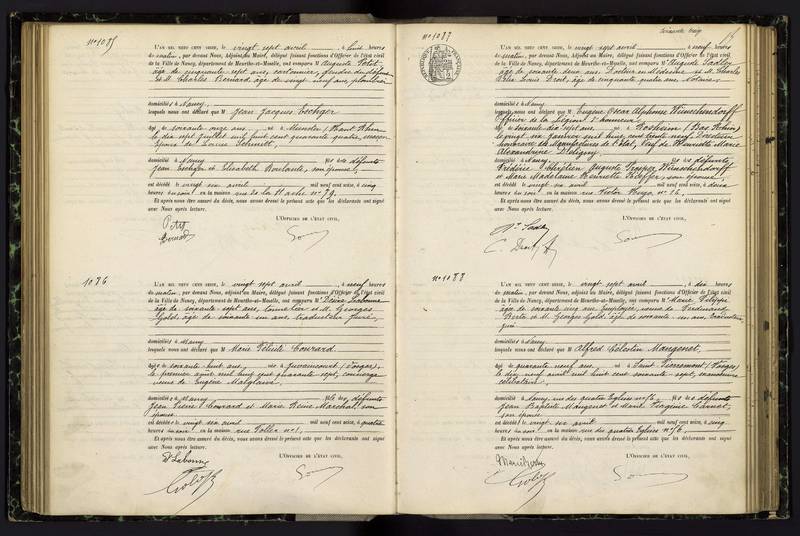 n° 1085
L'AN MIL NEUF CENT SEIZE, le vingt sept avril, à huit heures
du matin, par devant Nous, Adjoint au Maire, délégué faisant fonctions d'Officier de l'état civil
de la Ville de Nancy, département de Meurthe-et-Moselle, ont comparu M. Auguste Petit,
âgé de cinquante sept ans, cartonnier, gendre du défunt
et M. Charles Bernard, âgé de vingt neuf ans, plombier
domiciliés à Nancy,
lesquels nous ont déclaré que M Jean Jacques Eschger
âgé de soixante onze ans, né à Munster (Haut Rhin)
le dix sept juillet mil huit cent quarante quatre, maçon
époux de Louise Schmitt,
domicilié à Nancy, fils des défunts
Jean Eschger et Elisabeth son épouse,
est décédé le vingt six avril mil neuf cent seize, à cinq
heures du soir en la maison rue de la Hache n° 79.
Et après nous être assuré du décès, nous avons dressé le présent acte que les déclarants ont signé
avec Nous après lecture.
L'OFFICIER DE L'ÉTAT CIVIL,
Petit
Bernard
1086
L'AN MIL NEUF CENT SEIZE, le vingt sept avril, à neuf heures
du matin, par devant Nous, adjoint au Maire, délégué faisant fonctions d'Officier de l'état civil
de la Ville de Nancy, département de Meurthe-et-Moselle, ont comparu M. Désiré Labonne
âgé de soixante-sept ans, tonnelier et M. Georges
Gold, âgé de soixante un ans, traducteur juré,
domiciliés à Nancy
lesquels nous ont déclaré que M Marie Félicité Conrard
âgée de soixante huit ans, née à (Vosges),
le premier août mil huit cent quarante-sept, concierge
veuve de Eugène Malglaive,
domiciliée à Nancy fille des défunts
Jean Pierre Conrard et Marie Reine Marchal, son
épouse
est décédée le vingt six avril mil neuf cent seize, à quatre
heures du soir en la maison rue n° 1.
Et après nous être assuré du décès, nous avons dressé le présent acte que les déclarants ont signé
avec Nous après lecture.
L'OFFICIER DE L'ÉTAT CIVIL,
D Labonne
Gold
n° 1087
L'AN MIL NEUF CENT SEIZE, le vingt sept avril, à neuf heures
du matin, par devant Nous, Adjoint au Maire, délégué faisant fonctions d'Officier de l'état civil
de la Ville de Nancy, département de Meurthe-et-Moselle, ont comparu M. Auguste
âgé de soixante deux ans, Docteur en Médecine et M. Charles
Louis Droit, âgé de cinquante quatre ans, Notaire,
domiciliés à Nancy
lesquels nous ont déclaré que M Eugène Oscar Alphonse Wünschendorff
Officier de la Légion d'honneur
âgé de soixante dix sept ans, né à Rosheim (Bas Rhin)
le vingt six janvier mil huit cent trente neuf, Directeur
honoraire des Manufactures de l'Etat, veuf de Henriette Marie
Alexandrine
domicilié à Nancy, fils de défunts
Frédéric Chrétien Auguste Prosper Wünschendorff
et Marie Madelaine Henriette Pfeiffer, son épouse
est décédé le vingt six avril mil neuf cent seize, à deux
heures du soir en la maison rue Victor Hugo, n° 16.
Et après nous être assuré du décès, nous avons dressé le présent acte que les déclarants ont signé
avec Nous après lecture.
L'OFFICIER DE L'ÉTAT CIVIL,
C. Droit
n° 1088
L'AN MIL NEUF CENT SEIZE, le vingt sept avril, à dix heures
du matin, par devant Nous, adjoint au Maire, délégué faisant fonctions d'Officier de l'état civil
de la Ville de Nancy, département de Meurthe-et-Moselle, ont comparu M. Marie
âgée de soixante cinq ans, employée, veuve de Ferdinand
et M. Georges Gold, âgé de soixante-un ans, traducteur
juré
domiciliés à Nancy
lesquels nous ont déclaré que M Alfred Célestin Mangenot,
âgé de quarante neuf ans, né à Saint Pierremont (Vosges)
le dix neuf avril mil huit cent soixante-sept, manœuvre
célibataire,
domicilié à Nancy, rue des quatre Eglises n° 76, fils de défunts
Jean Baptiste Mangenot et Marie son épouse
est décédé le vingt six avril mil neuf cent seize, à cinq
heures du soir en la maison rue des quatre Eglises n° 76.
Et après nous être assuré du décès, nous avons dressé le présent acte que les déclarants ont signé
avec Nous après lecture.
L'OFFICIER DE L'ÉTAT CIVIL,
Gold